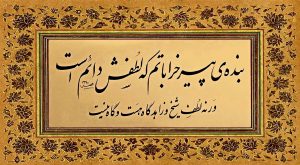 بنده‌ی پیر خراباتم که لطفش دائم است
ورنه لطف شیخ و زاهد گاه هست و گاه نیست